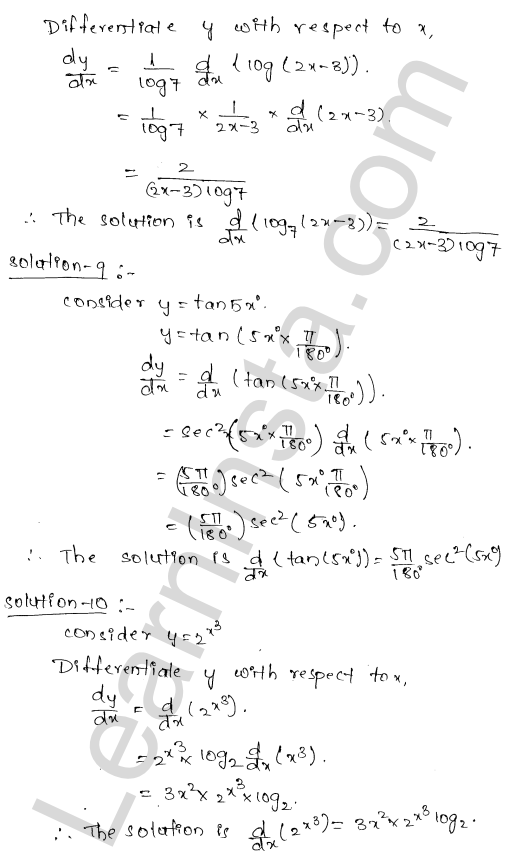 Differentiate y with respect to x,
dy/dx = 1/log7 d/dx (log(2x-3)).
= 1/log7 × 1/2x-3 × d/dx (2x-3).
= 2/(2x-3)log7
∴ The solution is d/dx (log₇(2x-3)) = 2/(2x-3)log7
solution-9 :-
consider y = tan5x°.
y = tan(5x°× π/180°).
dy/dx = d/dx (tan(5x°× π/180°)).
= sec²x(5x°× π/180°) d/dx (5x°× π/180°).
= (5π/180°) sec² (5x° π/180°)
= (5π/180°) sec² (5x°).
∴ The solution is d/dx (tan(5x°)) = 5π/180° sec²(5x°)
solution-10 :-
consider y = 2^x³
Differentiate y with respect to x,
dy/dx = d/dx (2^x³).
= 2^x³ × log₂ d/dx (x³).
= 3x² × 2^x³ × log₂.
∴ The solution is d/dx (2^x³) = 3x² × 2^x³ log₂.
LearnInsta.com